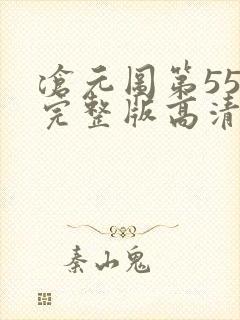 滄元图第55
完整版高清
秦山鬼